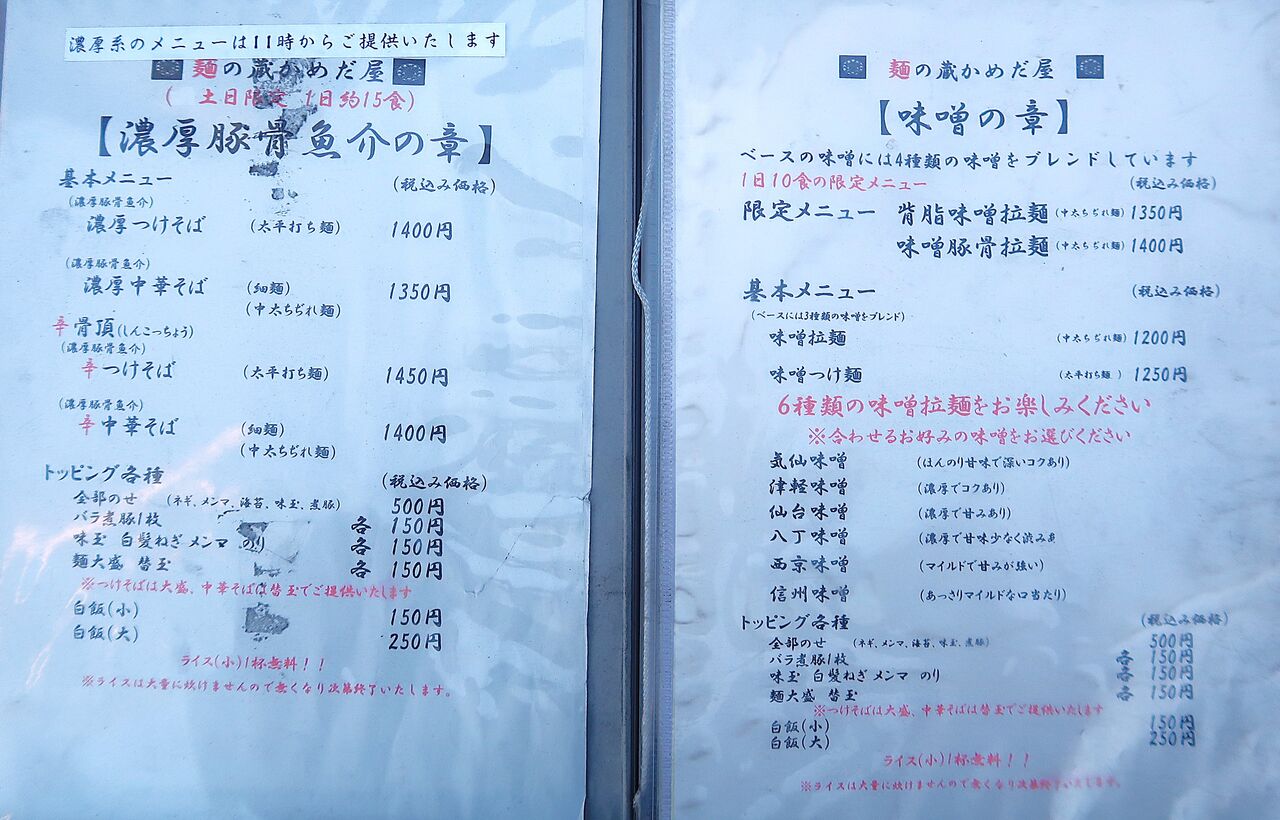 濃厚系のメニューは11時からご提供いたします
麺の蔵かめだ屋
( 土日限定 1日約15食)
【濃厚豚骨魚介の章】
基本メニュー (税込み価格)
(濃厚豚骨魚介)
濃厚つけそば (太平打ち麺) 1400円
(濃厚豚骨魚介)
濃厚中華そば (細麺) 1350円
(中太ちぢれ麺)
辛骨頂(しんこっちょう)
(濃厚豚骨魚介)
辛つけそば (太平打ち麺) 1450円
(濃厚豚骨魚介)
辛中華そば (細麺) 1400円
(中太ちぢれ麺)
トッピング各種 (税込み価格)
全部のせ (ネギ、メンマ、海苔、味玉、煮豚) 500円
バラ煮豚1枚 各 150円
味玉 白髪ねぎ メンマ のり 各 150円
麺大盛 替玉 各 150円
※つけそばは大盛、中華そばは替玉でご提供いたします
白飯(小) 150円
白飯(大) 250円
ライス(小)1杯無料!!
※ライスは大量に炊けませんので無くなり次第終了いたします。
麺の蔵かめだ屋
【味噌の章】
ベースの味噌には4種類の味噌をブレンドしています
1日10食の限定メニュー (税込み価格)
限定メニュー 背脂味噌拉麺 (中太ちぢれ麺) 1350円
味噌豚骨拉麺 (中太ちぢれ麺) 1400円
基本メニュー (税込み価格)
(ベースには3種類の味噌をブレンド)
味噌拉麺 (中太ちぢれ麺) 1200円
味噌つけ麺 (太平打ち麺 ) 1250円
6種類の味噌拉麺をお楽しみください
※合わせるお好みの味噌をお選びください
気仙味噌 (ほんのり甘味で深いコクあり)
津軽味噌 (濃厚でコクあり)
仙台味噌 (濃厚で甘みあり)
八丁味噌 (濃厚で甘味少なく渋みあ
西京味噌 (マイルドで甘みが強い)
信州味噌 (あっさりマイルドな口当たり)
トッピング各種 (税込み価格)
全部のせ (ネギ、メンマ、海苔、味玉、煮豚) 500円
バラ煮豚1枚 各 150円
味玉 白髪ねぎ メンマ のり 各 150円
麺大盛 替玉 各 150円
※つけそばは大盛、中華そばは替玉でご提供いたします
白飯(小) 150円
白飯(大) 250円
ライス(小)1杯無料!!
※ライスは大量に炊けませんので無くなり次第終了いたします。